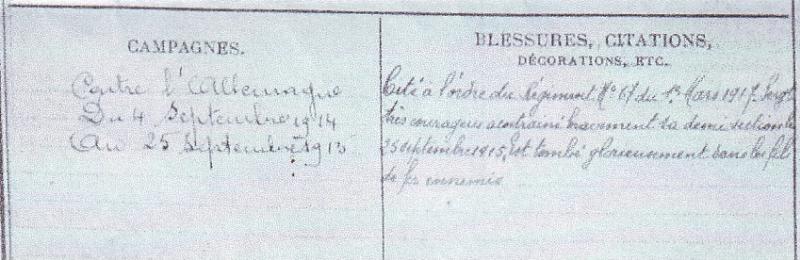 CAMPAGNES.
Contre l'Allemagne
Du 4 Septembre 1914
Au 25 Septembre 1915
BLESSURES, CITATIONS,
DÉCORATIONS, ETC.
Cité à l'ordre du Régiment No 67 du 1er Mars 1917. Sergt
très courageux a entrainé bravement sa demi section le
25 septembre 1915, est tombé glorieusement dans les fils
de fer ennemis